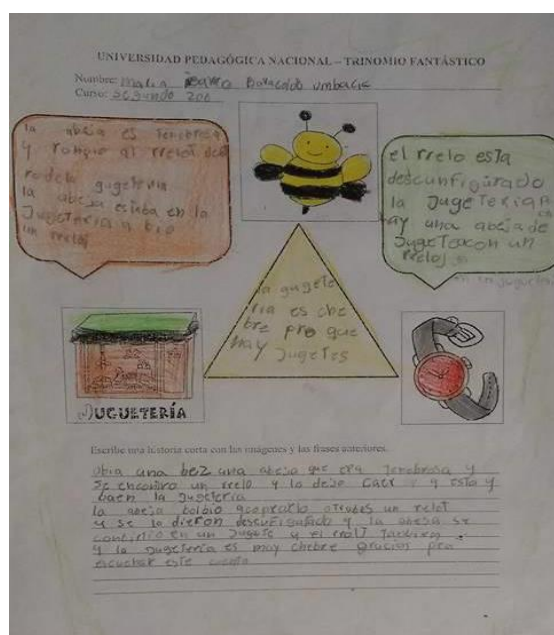 UNIVERSIDAD PEDAGÓGICA NACIONAL – TRINOMIO FANTÁSTICO
Nombre: maria
Curso: segundo 206
la abeja es tenebrosa
y rompio al rrelot
la abeja esteba en la
Jugeteria
un rreloj
el rrelo esta
descunfigurado
la Jugeteria
hay una abeja de
Jugete con un
rreloj
la gugete
ria es che
bre pro que
hay Jugetes
JUGUETERÍA
Escribe una historia corta con las imágenes y las frases anteriores.
Obia una bez una abeja que era tenebrosa y
se encontro un rrelo y lo dejo caer y
la Jugeteria
la abeja bolbio un relot
y se lo dieron y la abeja se
en un Jugete y el
y la Jugeteria es muy chebre grucias pra
escuchar este cuento